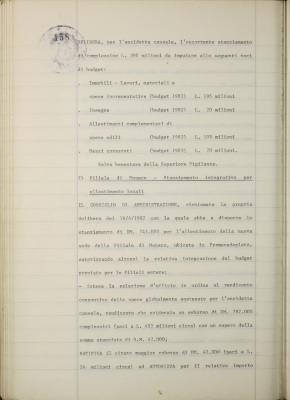 158
DELIBERA, per l'anzidetta causale, l'occorrente stanziamento
di complessive L. 390 milioni da imputare alle seguenti voci
di budget:
. Immobili - Lavori, materiali e
opere incrementative (budget 1982) L. 195 milioni
. Insegna (budget 1982) L. 20 milioni
. Allestimenti complementari di
opere edili (budget 1982) L. 105 milioni
. Mezzi corazzati (budget 1982) L. 70 milioni.
Salvo benestare della Superiore Vigilanza.
Filiale di Monaco - Stanziamento integrativo per
allestimento locali
IL CONSIGLIO DI AMMINISTRAZIONE, richiamata la propria
delibera del con la quale ebbe a disporre lo
stanziamento di DM. per l'allestimento della nuova
sede della Filiale di Monaco, ubicata in
autorizzando altresì la relativa integrazione del budget
previsto per le Filiali estere;
- intesa la relazione d'ufficio in ordine al rendiconto
consuntivo delle spese globalmente sostenute per l'anzidetta
causale, rendiconto che evidenzia un esborso di DM. 782.000
complessivi (pari a L. 437 milioni circa) con un supero della
somma stanziata di D.M. 42.000;
RATIFICA il citato maggior esborso di DM. 42.000 (pari a L.
24 milioni circa) ed AUTORIZZA per il relativo importo